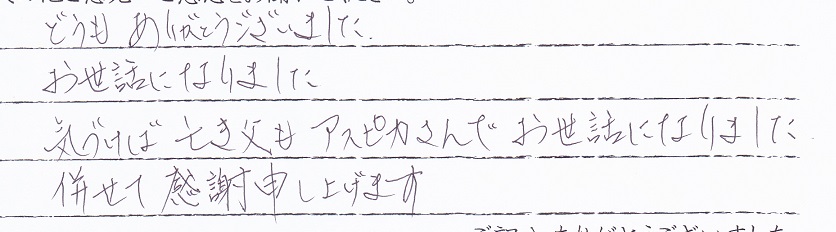 どうも ありがとうございました.
お世話になりました
気づけば 亡き父も アスピカさんで お世話になりました
併せて 感謝申し上げます